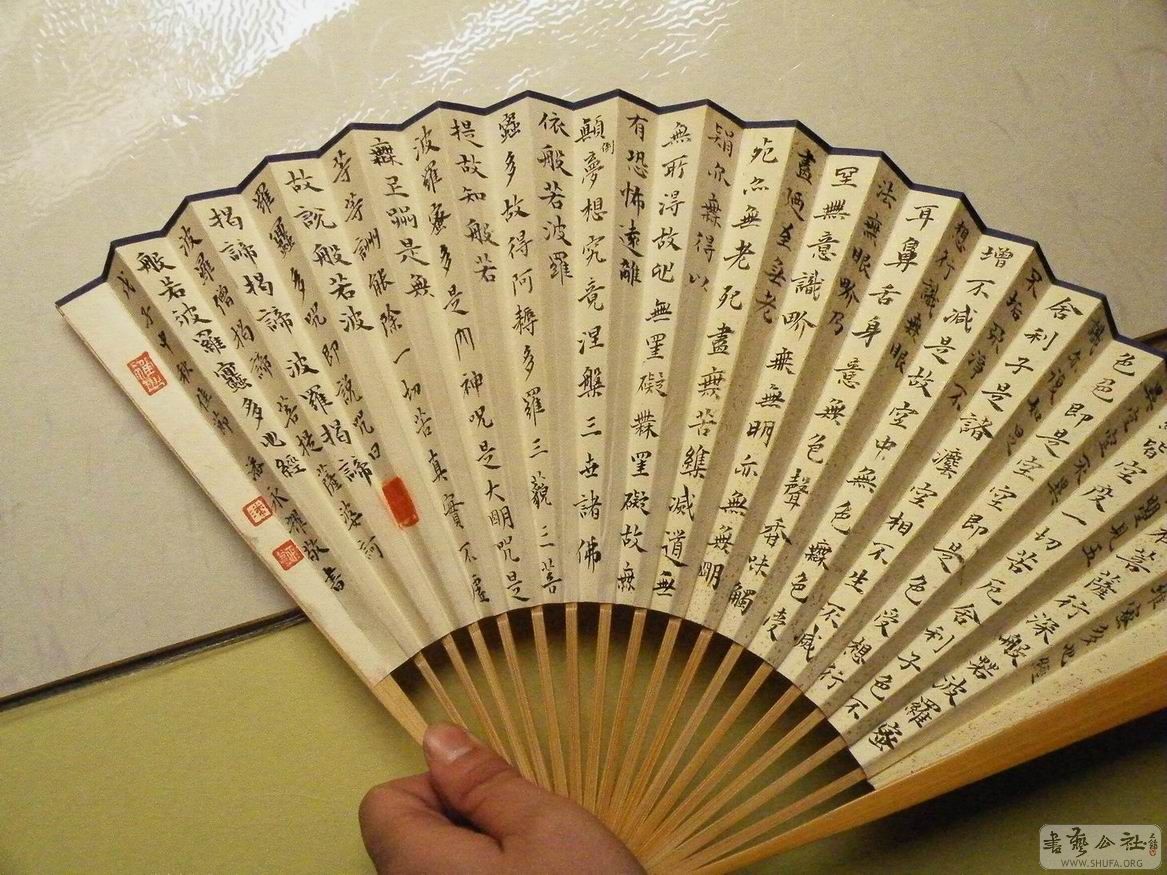 羅蜜多心經
菩薩行深般若波羅蜜
照見五
皆空度一切苦厄舍利子色
異空空不異
色色即是空空即是色受想行
識亦復如是
舍利子是諸法空相不生不滅
不垢不淨不
增不減是故空中無色無受
想行識無眼
耳鼻舌身意無色聲香味觸
法無眼界乃
至無意識界無無明亦無無明
盡迺至無老
死亦無老死盡無苦集滅道無
智亦無得以
無所得故心無罣礙無罣礙故無
有恐怖遠離
顛倒夢想究竟涅槃三世諸佛
依般若波羅
蜜多故得阿耨多羅三藐三菩
提故知般若
波羅蜜多是大神咒是大明咒是
無上咒是無
等等咒能除一切苦真實不虛
故說般若波
羅蜜多咒即說咒曰
揭諦揭諦波羅揭諦
波羅僧揭諦菩提薩婆訶
般若波羅蜜多心經
戊子中秋佳節 潘永耀敬書
書藝公社
WWW.SHUFA.ORG